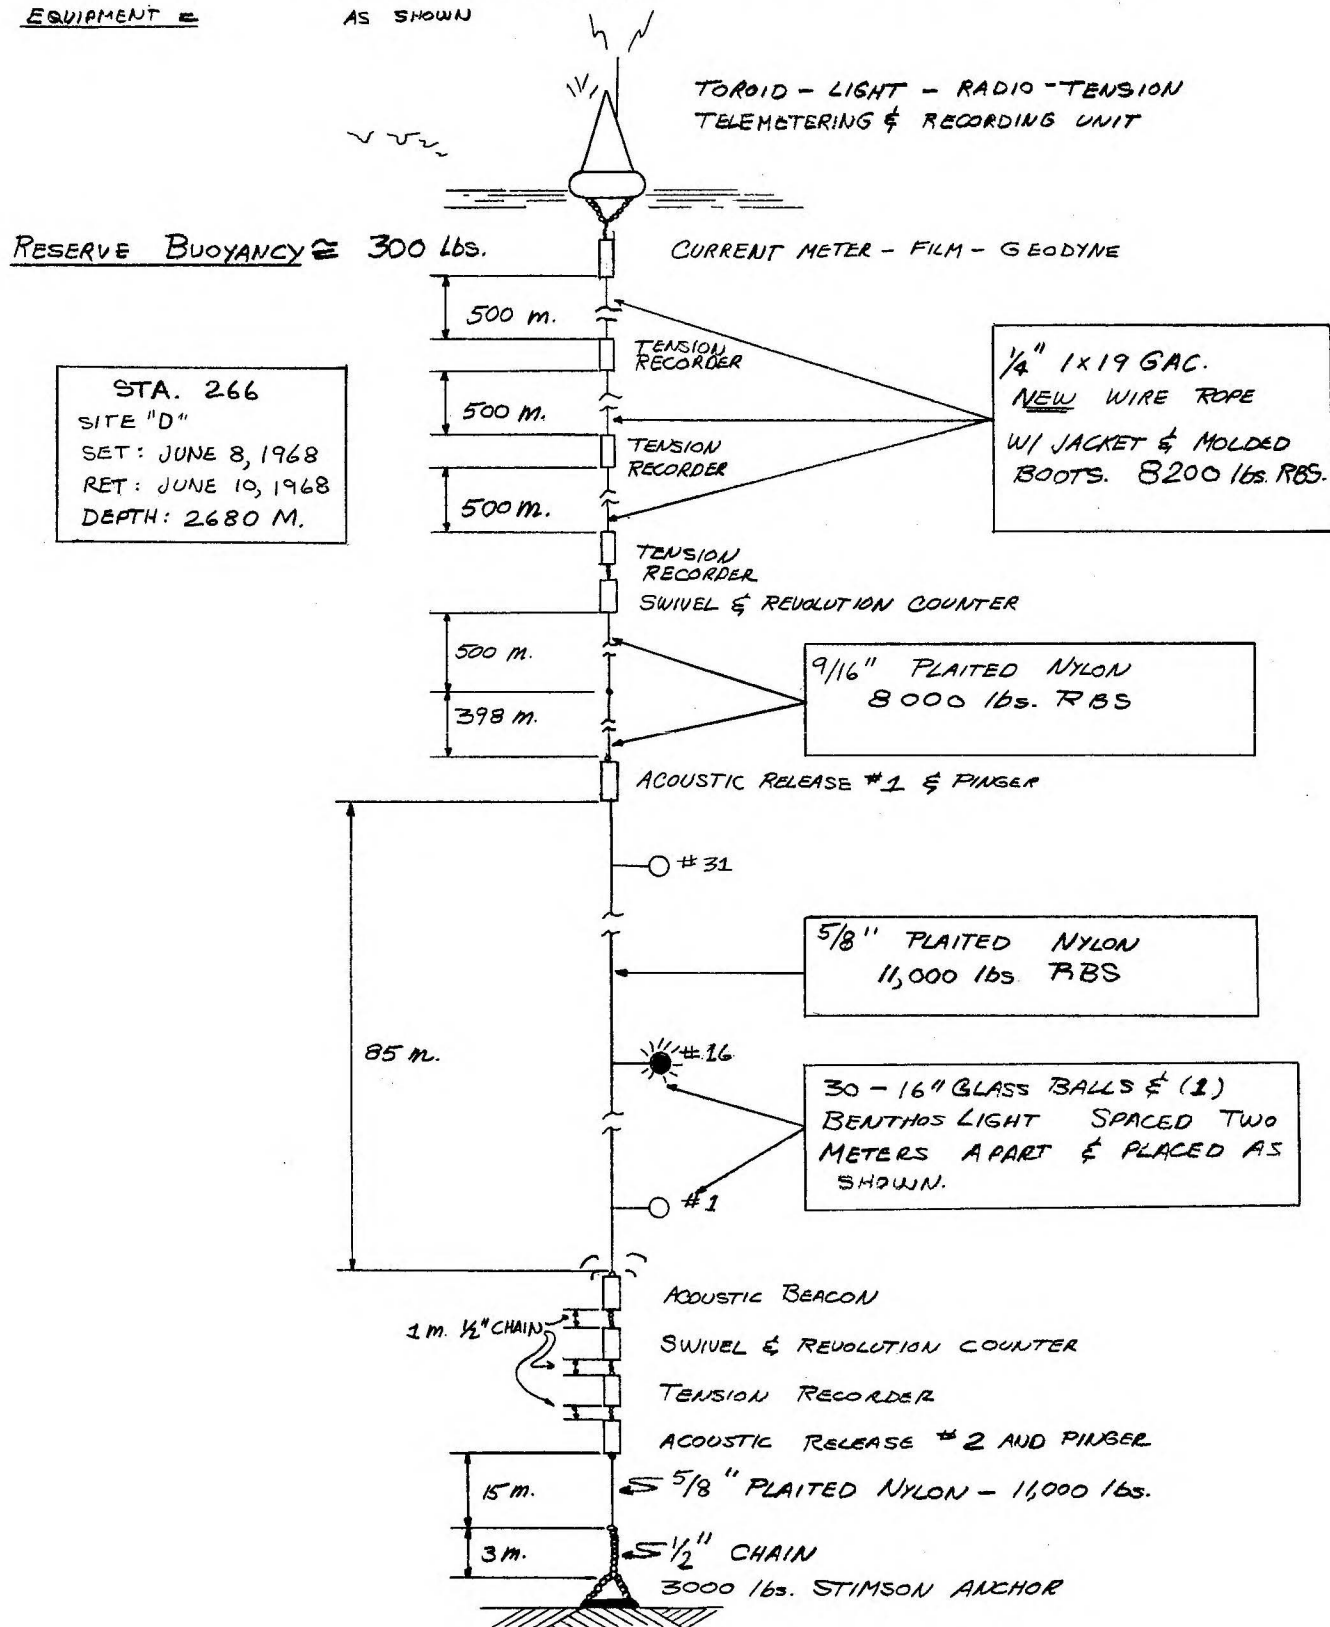 EQUIPMENT = AS SHOWN
TOROID - LIGHT - RADIO - TENSION
TELEMETERING & RECORDING UNIT
RESERVE BUOYANCY ≅ 300 lbs.
CURRENT METER - FILM - GEODYNE
500 m.
TENSION
RECORDER
1/4" 1x19 GAC.
NEW WIRE ROPE
W/ JACKET & MOLDED
BOOTS. 8200 lbs. RBS.
STA. 266
SITE "D"
SET: JUNE 8, 1968
RET: JUNE 10, 1968
DEPTH: 2680 M.
500 m.
TENSION
RECORDER
500 m.
TENSION
RECORDER
SWIVEL & REVOLUTION COUNTER
500 m.
398 m.
9/16" PLAITED NYLON
8000 lbs. RBS
ACOUSTIC RELEASE #1 & PINGER
#31
5/8" PLAITED NYLON
11,000 lbs. RBS
85 m.
#16
30 - 16" GLASS BALLS & (1)
BENTHOS LIGHT SPACED TWO
METERS APART & PLACED AS
SHOWN.
#1
ACOUSTIC BEACON
1 m. 1/2" CHAIN
SWIVEL & REVOLUTION COUNTER
TENSION RECORDER
ACOUSTIC RELEASE #2 AND PINGER
15 m.
5/8" PLAITED NYLON - 11,000 lbs.
3 m.
1/2" CHAIN
3000 lbs. STIMSON ANCHOR